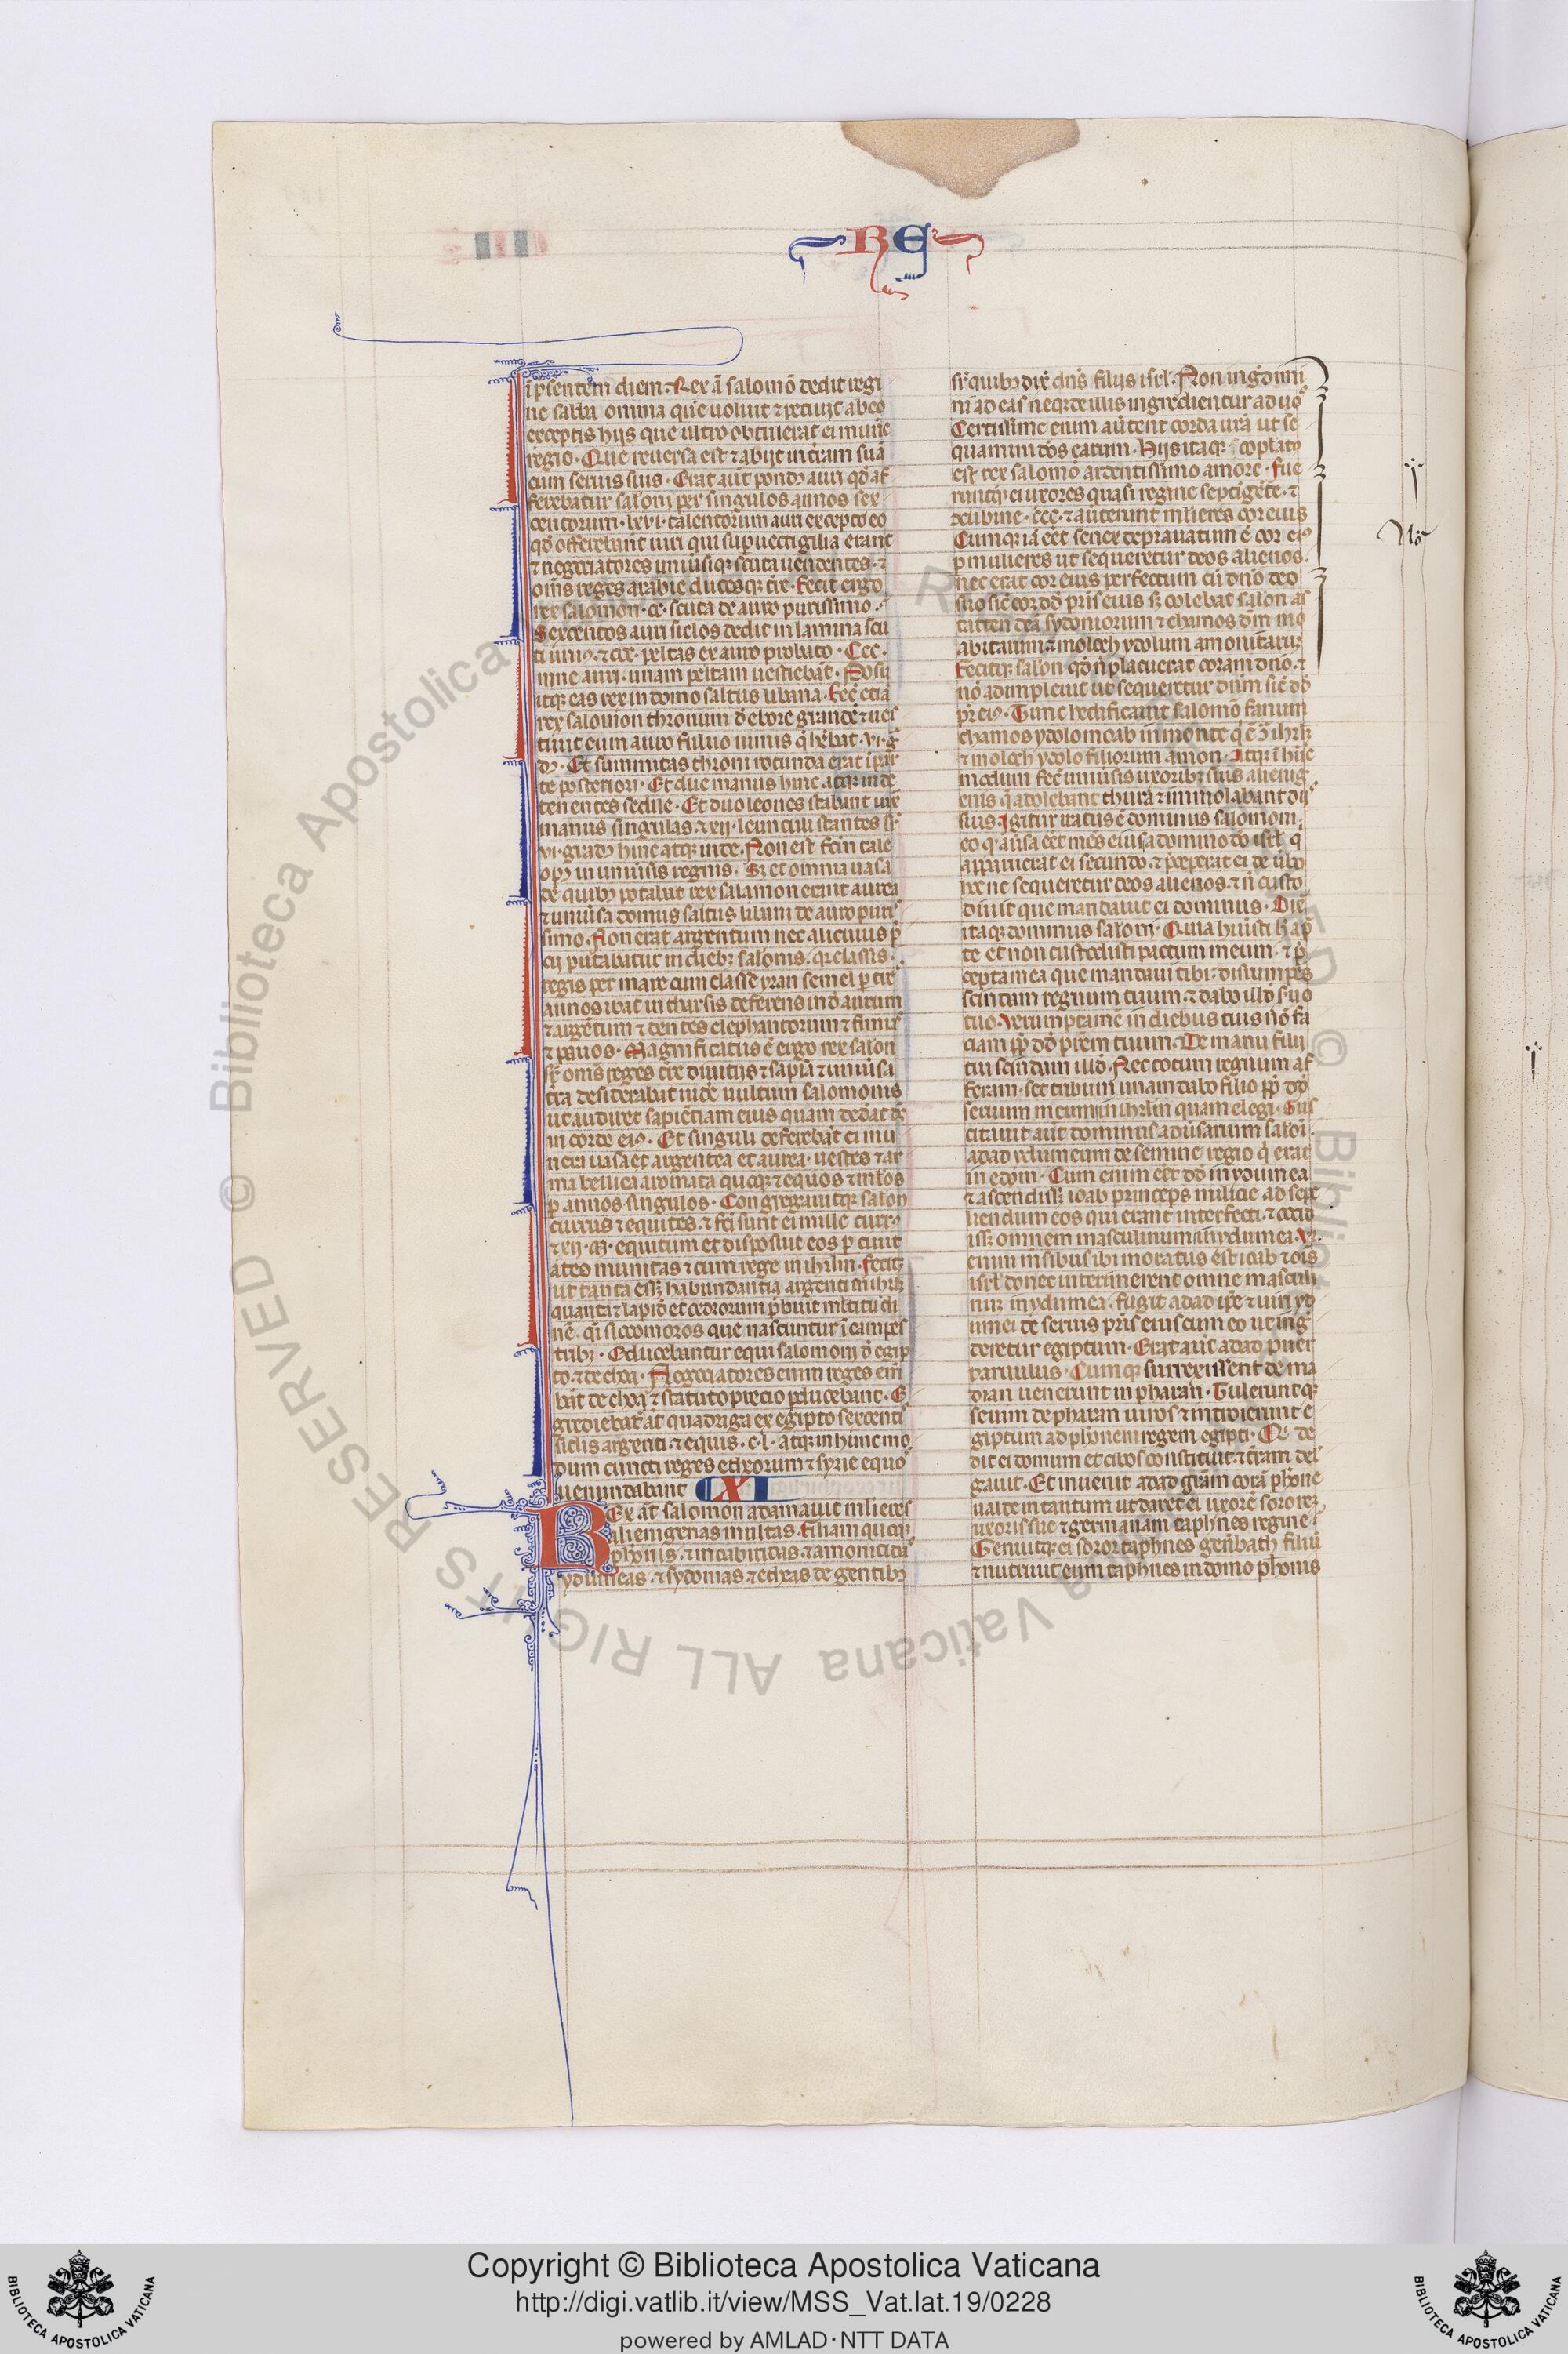 RE
i p̃sentem diem. Rex ã salomõ dedit regi
ne sabba omnia que uoluit ⁊ petiuit ab eo
exceptis hijs que ultro obtulerat ei mune
regio. Que reuersa est ⁊ abijt in t̃ram suã
cum seruis suis. Erat aũt pond⁹ auri qď af
ferebatur salom̃ per singulos annos sex
centorum. lxvi. talentorum auri excepto eo
qď offerebant uiri qui sup uectigalia erant
⁊ negociatores uniũsiq; scuta uendentes. ⁊
om̃s reges arabie duces q; t̃re. Fecit ergo
rex salomon. cc. scuta de auro purissimo.
Sexcentos auri siclos dedit in lamina scu
ti uni⁹. ⁊ ccc. peltas ex auro probato. Ccc.
mne auri. unam peltam uestiebãt. Posu
itq; eas rex in domo saltus libani. Fec̃ etiã
rex salomon thronum ď ebore grandẽ ⁊ ues
tiuit eum auro fuluo nimis q̃ hẽbat. vi. g̃
d⁹. Et summitas throni rotunda erat ĩ par
te posteriori. Et due manus hinc atq; inde
tenentes sedile. Et duo leones stabant iux̃
manus singulas. ⁊ xij. leunculi stantes sr̃
vi. grad⁹ hinc atq; inde. Non est fc̃m tale
op⁹ in uniũsis regnis. Sz et omnia uasa
de quib⁹ potabat rex salamon erant aurea
⁊ uniũsa domus saltus libani de auro puris
simo. Non erat argentum nec alicuius p̃
cij putabatur in dieb; salonis. q; classis.
regis per mare cum classe yran semel p tres
annos ibat in tharsis deferens inď aurum
⁊ argẽtum ⁊ dentes elephantorum ⁊ simias
⁊ pauos. Magnificatus ẽ ergo rex salon
sr̃ om̃s reges t̃re diuitijs ⁊ sapiã ⁊ uniũsa
t̃ra desiderabat uidẽ uultum salomonis
ut audiret sapiẽtiam eius quam deďat ds̃
in corde ei⁹. Et singuli deferebãt ei mu
nera uasa et argentea et aurea. uestes ⁊ ar
ma bellica aromata quoq; ⁊ equos ⁊ mulos
p annos singulos. Congregauitq; salon
currus ⁊ equites. ⁊ fc̃i sunt ei mille curr⁹
⁊ xij. m̃. equitum et disposuit eos p ciuit
ates munitas ⁊ cum rege in ihrlm. Fecitq;
ut tanta ess; habundantia argenti in ihrlm
quanta ⁊ lapid̃ et cedrorum p̃buit multitudi
nẽ. q̃i sicomoros que nascuntur ĩ campes
trib;. Educebantur equi salomoni ď egip
to. ⁊ de choa. Negociatores enim reges em̃
bãt de choa ⁊ statuto precio pducebant. E
grediebat̃ ãt quadriga ex egipto sexcentis
siclis argenti. ⁊ equis. c.l. atq; in hunc mo
dum cuncti reges etheorum ⁊ syrie equos
uenundabant XI
Rex ãt salomon adamauit m̃lieres
alienigenas multas. filiam quoq;
phonis. ⁊ moabiticas ⁊ amoniticas
ydumeas. ⁊ sydonias ⁊ etheas de gentib⁹
sr̃ quib⁹ dix̃ dn̄s filijs isrl̃. Non ingďimi
ni ad eas neq; de illis ingredientur ad uos
Certissime enim aũtent corda urã ut se
quamini ďos earum. Hijs itaq; copulatꝰ
est rex salomõ ardentissimo amore. fue
runtq; ei uxores quasi regine septigẽte. ⁊
ꝯcubine. ccc. ⁊ aũterunt mlieres cor eius
Cumq; iã eẽt senex deprauatum ẽ cor ei⁹
p mulieres ut sequeretur deos alienos.
nec erat cor eius perfectum cũ dño deo
suo sic̃ cor ďď pr̃is eius sz colebat salon as
tarten deã sydoniorum ⁊ chamos dm̃ mo
abitarum. ⁊ moloch ydolum amonitarum
Fecitq; salon qď ñ placuerat coram dño. ⁊
nõ adimpleuit ut sequeretur dñm sic̃ ďď
pr̃ ei⁹. Tunc hedificauit salomõ fanum
chamos ydolo moab in monte q̃ ẽ ꝯ̃ ihrlm
⁊ moloch ydolo filiorum amon. Atq; ĩ hũc
modum fec̃ uniũsis uxorib; suis alienig
enis q̃ adolebant thura ⁊ immolabant dijs
suis. Igitur iratus ẽ dominus salomoni
eo q̃ aũsa eẽt mẽs eius a domino ďo isrl̃ qui
apparuerat ei secundo. ⁊ p̃ceperat ei de ũbo
hoc ne sequeretur deos alienos. ⁊ ñ custo
diuit que mandauit ei dominus. Dix̃
itaq; dominus salom̃. Quia habuisti h̃ ap̃
te et non custodisti pactum meum. ⁊ p̃
cepta mea que mandaui tibi: disrumpẽs
scindam regnum tuum ⁊ dabo illď s̃uo
tuo. Verumptamẽ in diebus tuis nõ fa
ciam pp̃ ďď pr̃em tuum. De manu filij
tui scindam illď. Nec totum regnum af
feram. set tribum unam dabo filio pp̃ ďď
seruum meum in ihrlm quam elegi. Sus
citauit aũt dominus adũsarium salom̃
adad ydumeum de semine regio q̃ erat
in edom. Cum enim eẽt ďď in ydumea
⁊ ascendiss; ioab princeps milicie ad sepe
liendum eos qui erant interfecti. ⁊ occid
iss; omnem masculinum in ydumea. vi.
enim m̃sibus ibi moratus est ioab ⁊ om̃s
isrl̃ donec interimerent omne masculi
num in ydumea. fugit adad ip̃e ⁊ uiri yd
umei de seruis pr̃is eius cum eo ut ing̃
deretur egiptum. Erat aũt adad puer
paruulus. Cumq; surrexissent de ma
dian uenerunt in pharan. Tuleruntq;
secum de pharan uiros ⁊ introierunt e
giptum ad phonem regem egipti. Qi de
dit ei domum et cibos constituit. ⁊ t̃ram del
gauit. Et inuenit adad grãm corã phõne
ualde in tantum ut daret ei uxorẽ sororem
uxoris sue ⁊ germanam taphnes regine.
Genuitq; ei soror taphnes genbath filiũ
⁊ nutriuit eum taphnes in domo phonis
© Biblioteca Apostolica Vaticana ALL RIGHTS RESERVED
Copyright © Biblioteca Apostolica Vaticana
http://digi.vatlib.it/view/MSS_Vat.lat.19/0228
powered by AMLAD·NTT DATA
BIBLIOTECA APOSTOLICA VATICANA
BIBLIOTECA APOSTOLICA VATICANA